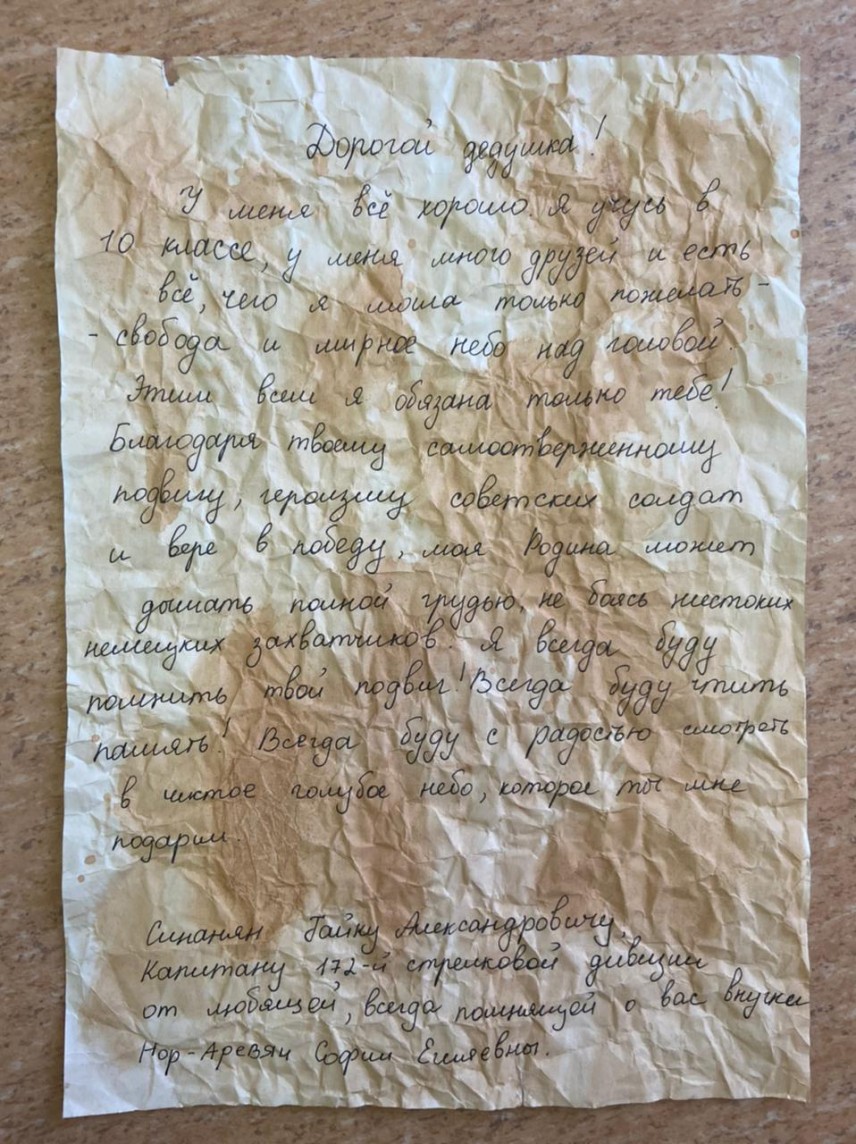 Дорогой дедушка!
У меня всё хорошо. Я учусь в
10 классе, у меня много друзей и есть
всё, чего я могла только пожелать -
- свобода и мирное небо над головой.
Этим всем я обязана только тебе!
Благодаря твоему самоотверженному
подвигу, героизму советских солдат
и вере в победу, моя Родина может
дышать полной грудью, не боясь жестоких
немецких захватчиков. Я всегда буду
помнить твой подвиг! Всегда буду чтить
память! Всегда буду с радостью смотреть
в чистое голубое небо, которое ты мне
подарил.
Синанян Гайку Александровичу,
Капитану 172-й стрелковой дивизии
от любящей, всегда помнящей о вас внучки
Нор-Аревян Софии Евны.